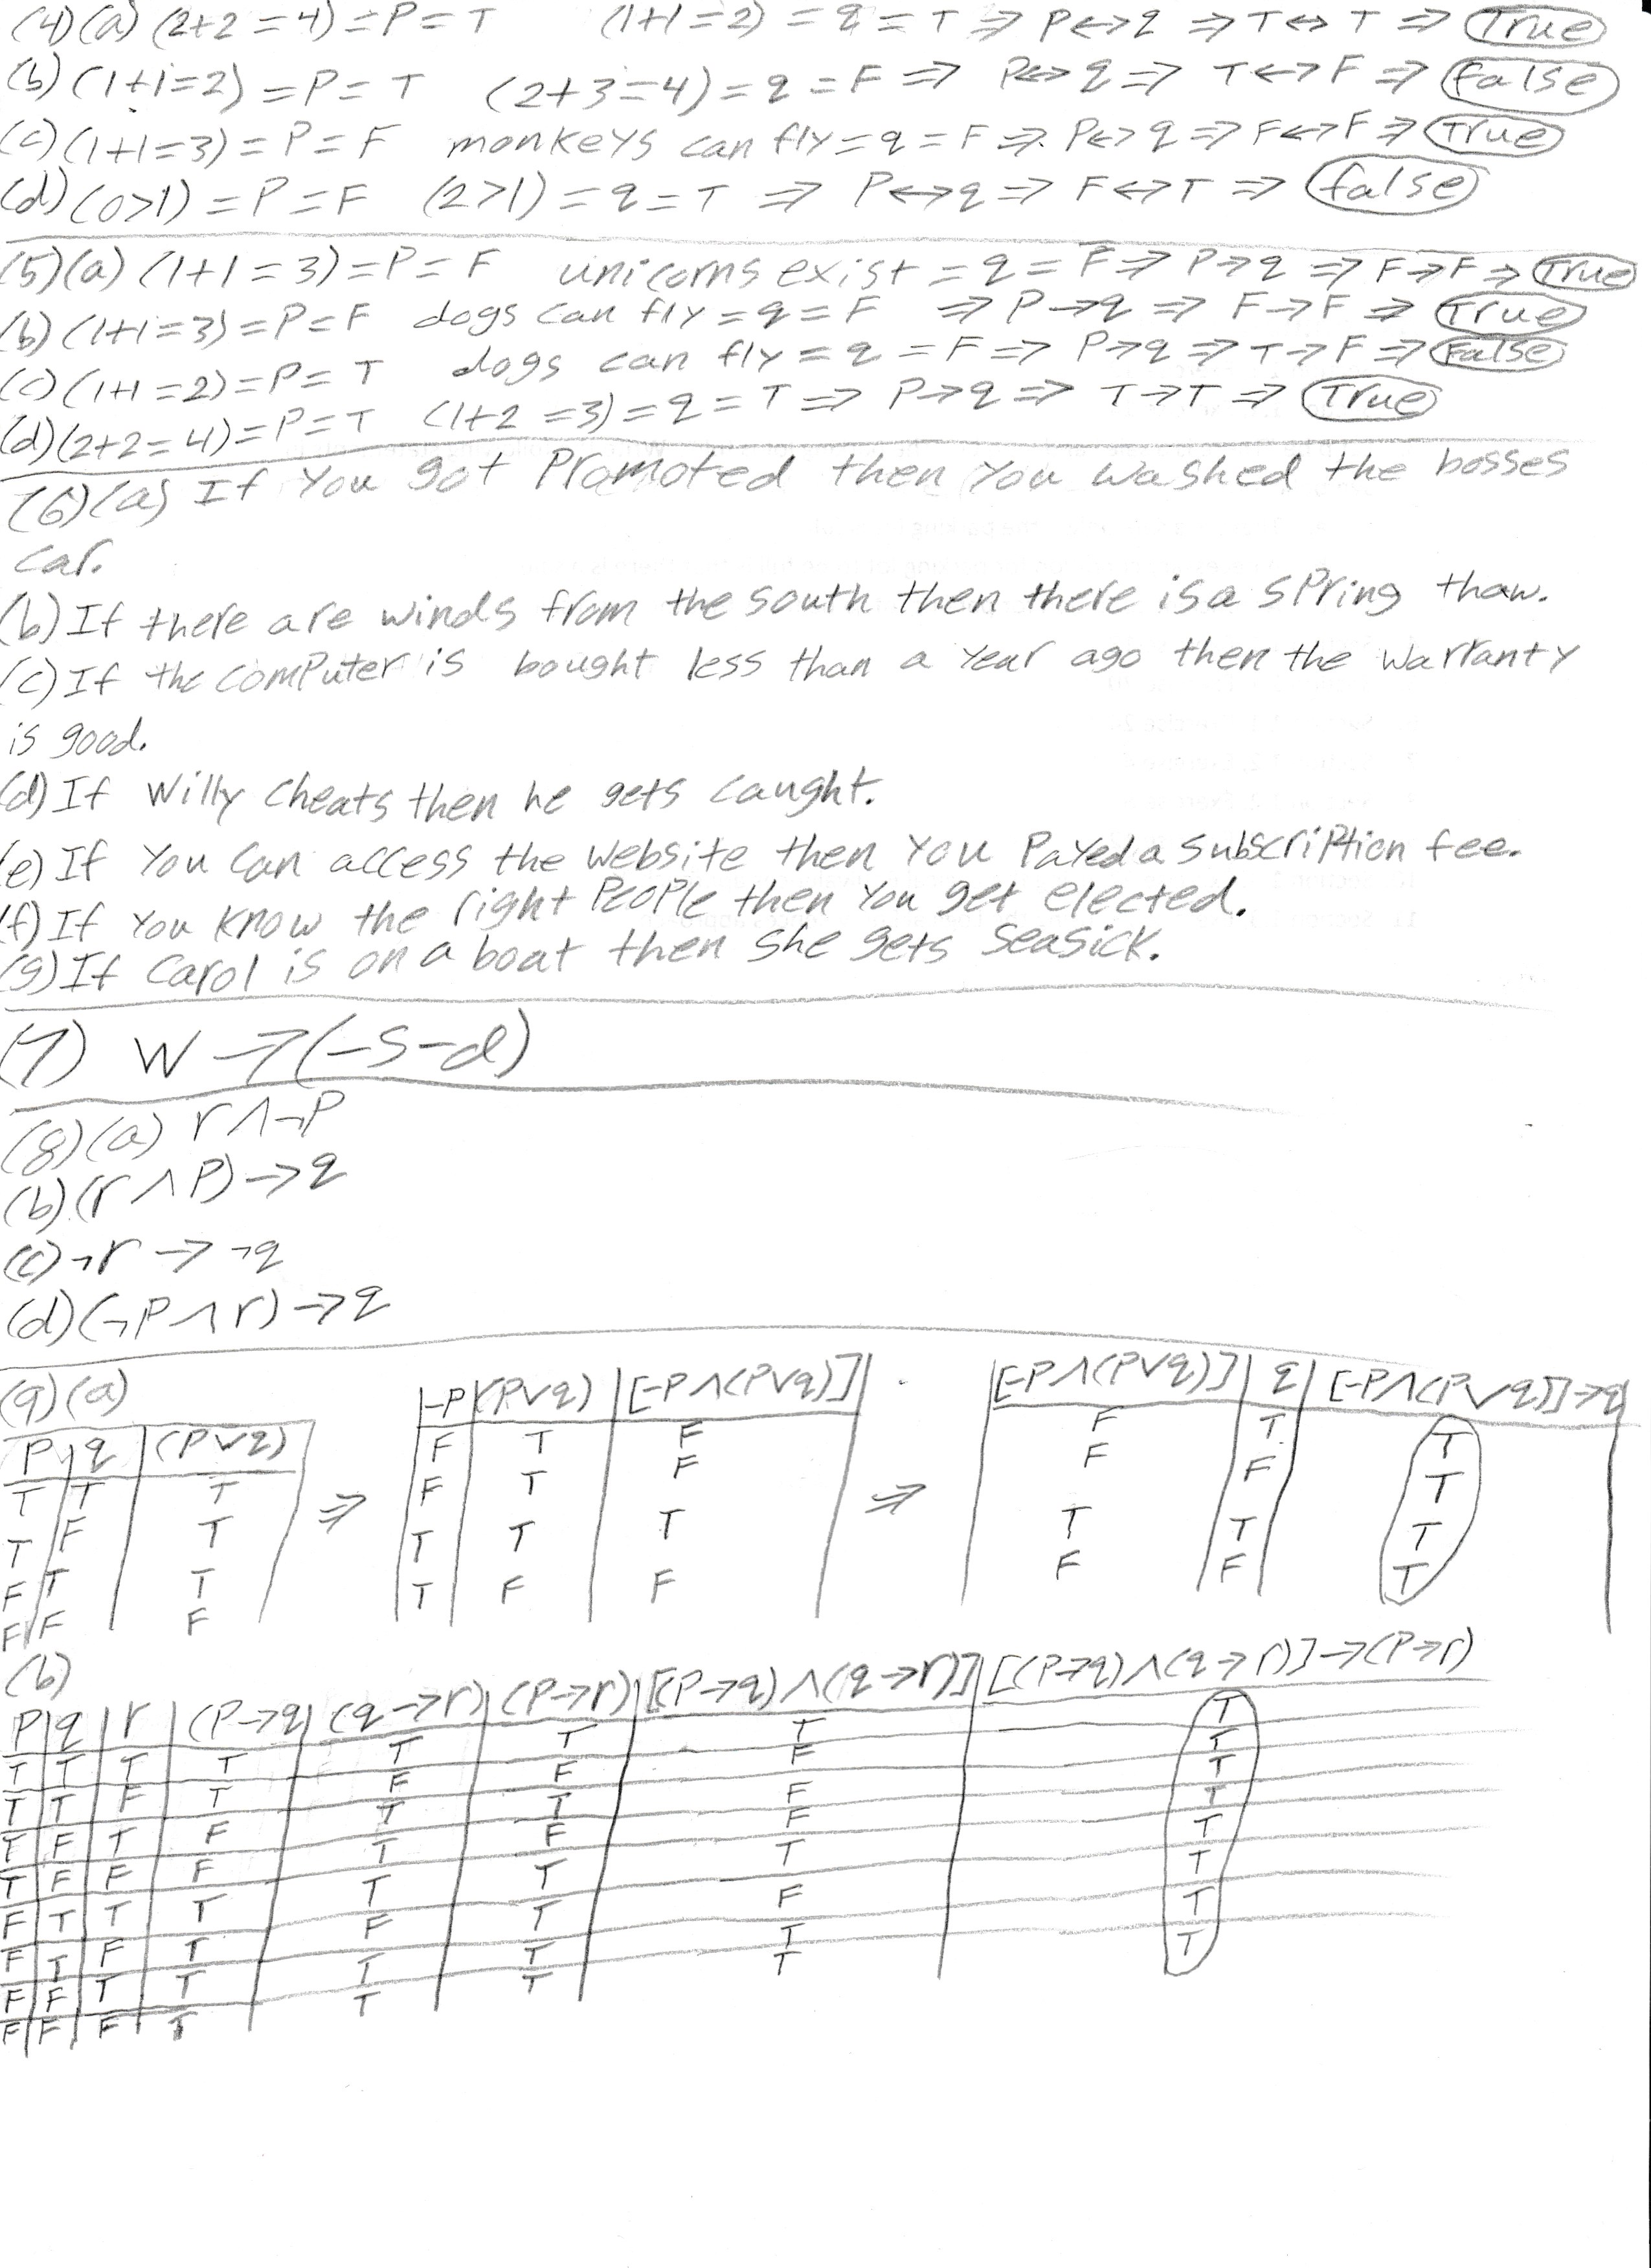 (4)(a) (2+2=4)=P=T (1+1=2)=q=T ⇒ P↔q ⇒ T↔T ⇒ True
(b)(1+1=2)=P=T (2+3=4)=q=F ⇒ P↔q ⇒ T↔F ⇒ false
(c)(1+1=3)=P=F monkeys can fly=q=F ⇒ P↔q ⇒ F↔F ⇒ True
(d)(0>1)=P=F (2>1)=q=T ⇒ P↔q ⇒ F↔T ⇒ false
(5)(a) (1+1=3)=P=F unicorns exist=q=F ⇒ P→q ⇒ F→F ⇒ True
(b)(1+1=3)=P=F dogs can fly=q=F ⇒ P→q ⇒ F→F ⇒ True
(c)(1+1=2)=P=T dogs can fly=q=F ⇒ P→q ⇒ T→F ⇒ False
(d)(2+2=4)=P=T (1+2=3)=q=T ⇒ P→q ⇒ T→T ⇒ True
(6)(a) If You got Promoted then You washed the bosses
car.
(b) If there are winds from the south then there is a spring thaw.
(c) If the computer is bought less than a year ago then the warranty
is good.
(d) If Willy cheats then he gets caught.
(e) If You can access the website then You Payed a subscription fee.
(f) If You know the right People then You get elected.
(g) If Carol is on a boat then she gets seasick.
(7) W → (-S-d)
(8)(a) r∧¬P
(b)(r∧P)→q
(c)¬r→¬q
(d)(¬P∧r)→q
(9)(a)
P q (P∨q) ⇒ -P (P∨q) [-P∧(P∨q)] ⇒ [-P∧(P∨q)] q [-P∧(P∨q)]→q
T T T F T F F T T
T F T F T F F F T
F T T T T T T T T
F F F T F F F F T
(b)
P q r (P→q) (q→r) (P→r) [(P→q)∧(q→r)] [(P→q)∧(q→r)]→(P→r)
T T T T T T T T
T T F T F F F T
T F T F T T F T
T F F F T F F T
F T T T T T T T
F T F T F T F T
F F T T T T T T
F F F T T T T T